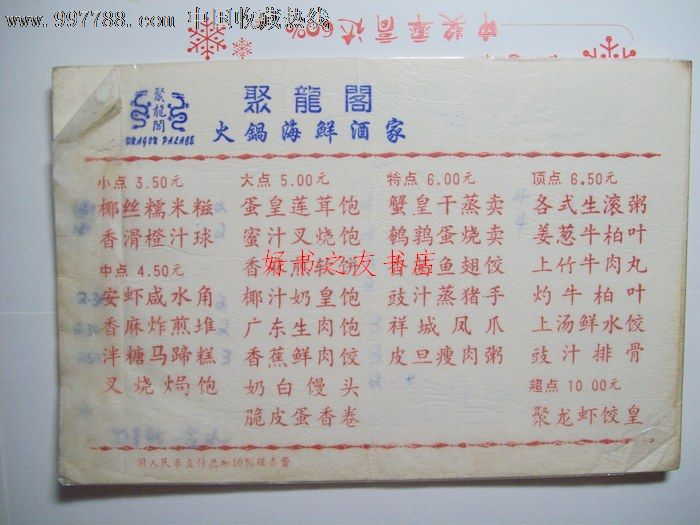 www.997788.com 中国收藏热线
聚龍閣
DRAGON PALACE
聚龍閣
火鍋海鮮酒家
小点 3.50元
椰丝糯米糍
香滑橙汁球
中点 4.50元
安虾咸水角
香麻炸煎堆
泮塘马蹄糕
叉烧焗饱
大点 5.00元
蛋皇莲茸饱
蜜汁叉烧饱
香
煎
饼
椰汁奶皇饱
广东生肉饱
香蕉鲜肉饺
奶白馒头
脆皮蛋香卷
特点 6.00元
蟹皇干蒸卖
鹌鹑蛋烧卖
鱼翅饺
豉汁蒸猪手
祥城凤爪
皮旦瘦肉粥
顶点 6.50元
各式生滚粥
姜葱牛柏叶
上竹牛肉丸
灼牛柏叶
上汤鲜水饺
豉汁排骨
超点 10.00元
聚龙虾饺皇
好书之友书店
用人民币支付兰加10%服务费